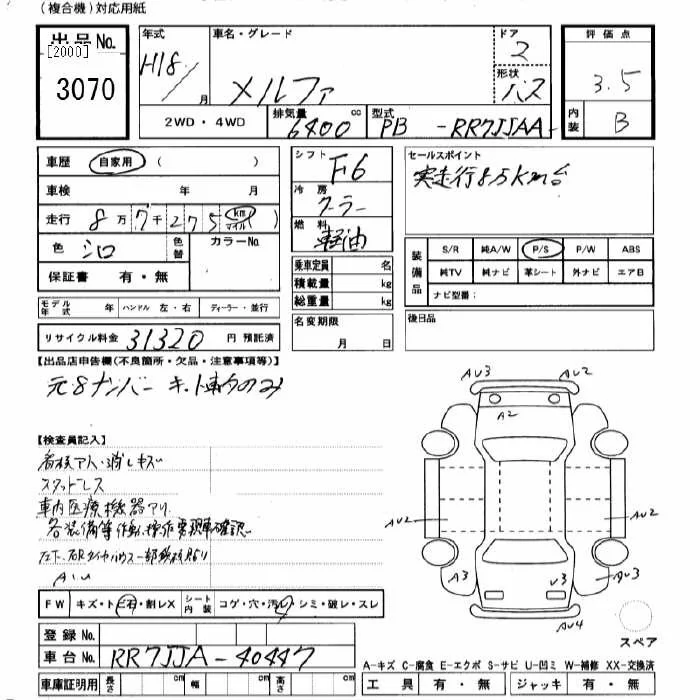 (複合機)対応用紙
出品No.
[2000]
3070
年式
H18/
月
車名・グレード
メルファ
ドア
2
形状
バス
評価点
3.5
内装
B
2WD・4WD
排気量
6400
cc
型式
PB -RR7JJAA-
車歴 自家用 ( )
車検 年 月
走行 8万7千275 km マイル ( )
色 シロ
色替
カラーNo.
保証書 有・無
モデル年式 年
ハンドル 左・右
ディーラー・並行
リサイクル料金 31320 円 預託済
シフト
F6
冷房
クーラー
燃料
軽油
乗車定員 名
積載量 kg
総重量 kg
名変期限
月 日
セールスポイント
実走行8万km台
装備品
S/R 純A/W P/S P/W ABS
純TV 純ナビ 革シート 外ナビ エアB
ナビ型番:
後日品
【出品店申告欄(不良箇所・欠品・注意事項等)】
元8ナンバー キ.ト車内のみ
【検査員記入】
看板アト・消しキズ
スタッドレス
車内医療機器アリ.
各装備等作動、操作要現車確認
A1U
FW キズ・トビ石・割レX
シート内装 コゲ・穴・汚レ・シミ・破レ・スレ
登録No.
車台No. RR7JJA-40447
車庫証明用 長さ cm 幅 cm 高さ cm
AU3
AU2
A2
AU2
AU2
A3
V3
AU3
AU4
スペア
A-キズ C-腐食 E-エクボ S-サビ U-凹ミ W-補修 XX-交換済
工具 有・無 ジャッキ 有・無